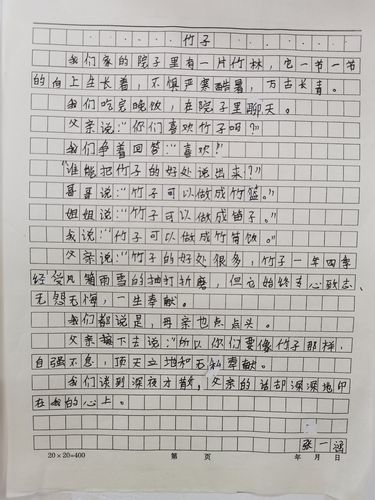 竹子
我们家的院子里有一片竹林，它一节一节
的向上生长着，不惧严寒酷暑，万古长青。
我们吃完晚饭，在院子里聊天。
父亲说：“你们喜欢竹子吗？”
我们争着回答：“喜欢！”
“谁能把竹子的好处说出来？”
哥哥说：“竹子可以做成竹篮。”
姐姐说：“竹子可以做成笛子。”
我说：“竹子可以做成竹筒饭。”
父亲说：“竹子的好处很多，竹子一年四季
经受风霜雨雪的抽打折磨，但它始终专心致志、
无怨无悔，一生奉献。
我们都说是，母亲也点点头。
父亲接下去说：“所以你们要像竹子那样，
自强不息，顶天立地和无私奉献。
我们谈到深夜才散，父亲的话却深深地印
在我的心上。
张一涵
20×20=400 第 页 年 月 日